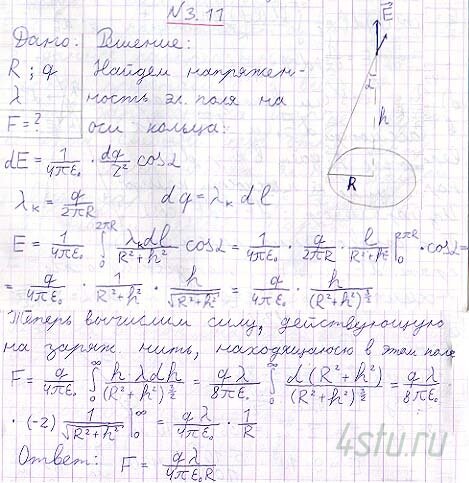 N 3.11
Дано: Решение:
R ; q Найдем напряжен-
λ ность эл. поля на
F = ? оси кольца:
E
α
h
R
dE = 1/4πε₀ · dq/r² cosα
λₖ = q/2πR dq = λₖ dl
E = 1/4πε₀ ∫₀^2πR λₖdl/R²+h² cosα = 1/4πε₀ · q/2πR · l/R²+h² |₀^2πR · cosα =
= q/4πε₀ · 1/R²+h² · h/√R²+h² = q/4πε₀ · h/(R²+h²)^3/2
Теперь вычислим силу, действующую
на заряж. нить, находящуюся в этом поле
F = q/4πε₀ ∫₀^∞ h·λdh/(R²+h²)^3/2 = qλ/8πε₀ ∫₀^∞ d(R²+h²)/(R²+h²)^3/2 = qλ/8πε₀ ·
· (-2) 1/√R²+h² |₀^∞ = qλ/4πε₀ · 1/R
Ответ: F = qλ/4πε₀R
4stu.ru